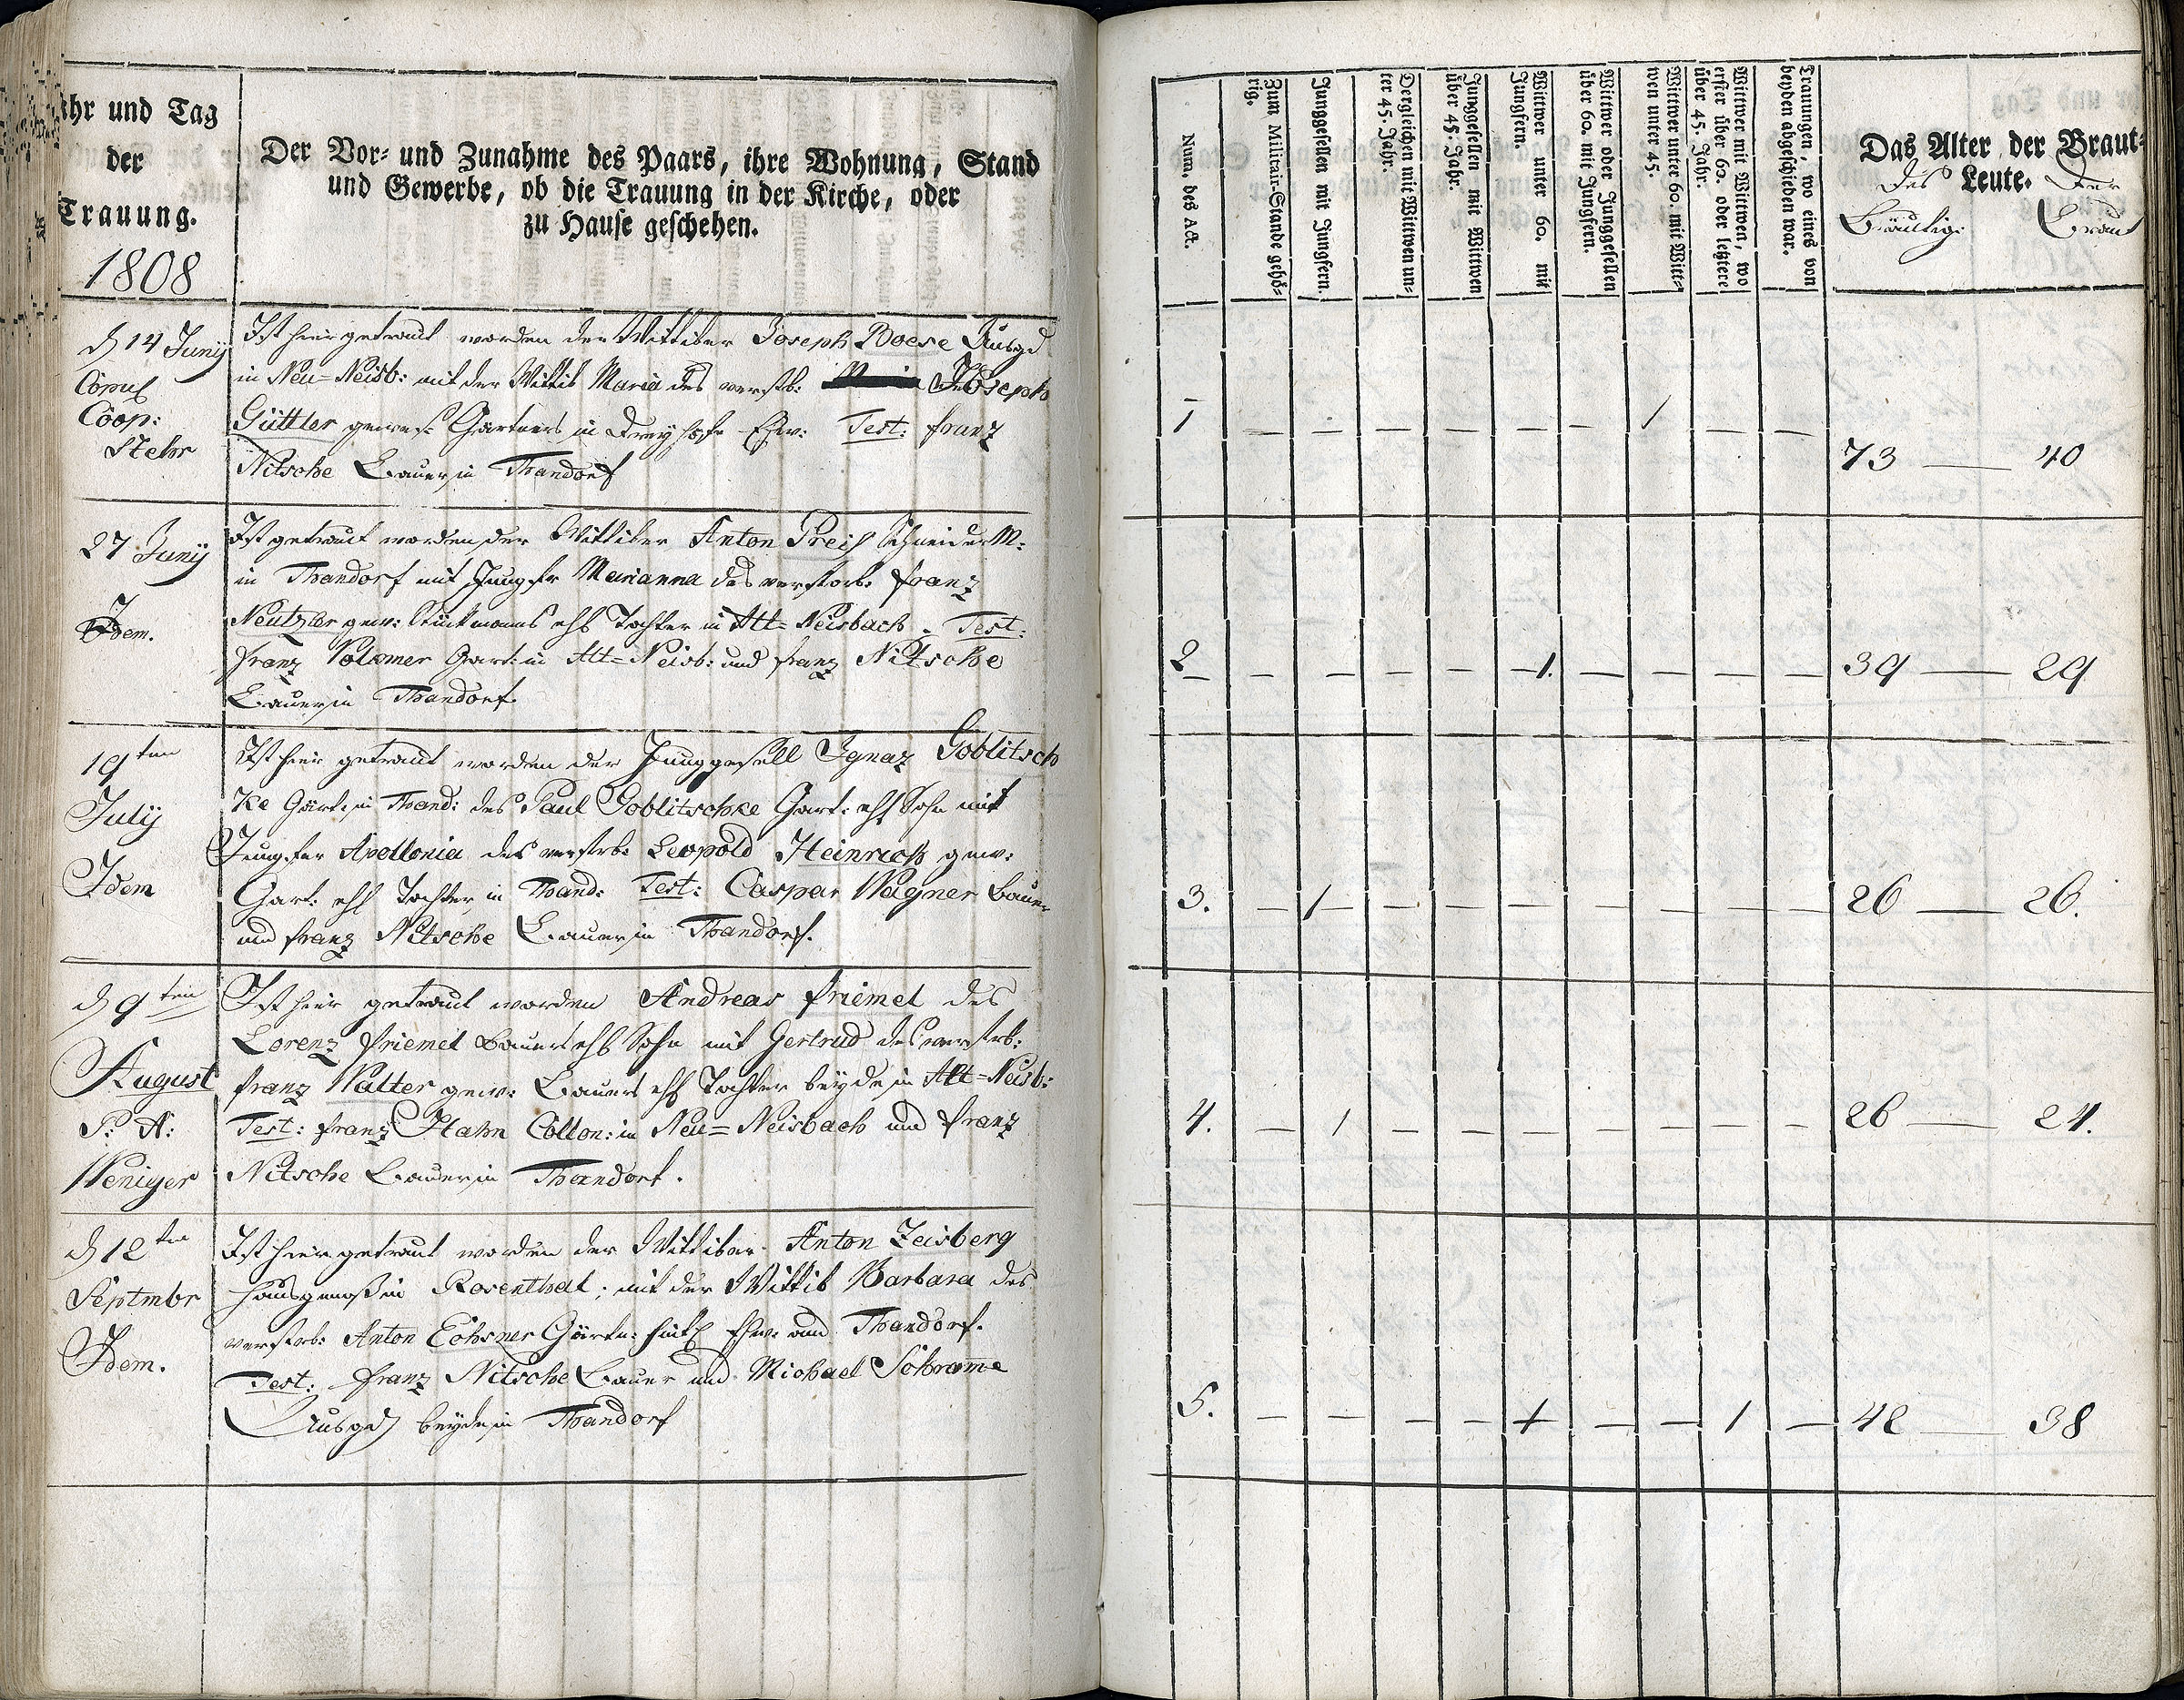 Jahr und Tag
der
Trauung.
1808
Der Vor- und Zunahme des Paars, ihre Wohnung, Stand
und Gewerbe, ob die Trauung in der Kirche, oder
zu Hause geschehen.
Num. des Act.
Zum Militair-Stande gehö-
rig.
Junggesellen mit Jungfern.
Dergleichen mit Wittwen un-
ter 45. Jahr.
Junggesellen mit Wittwen
über 45. Jahr.
Wittwer unter 60. mit
Jungfern.
Wittwer oder Junggesellen
über 60. mit Jungfern.
Wittwer unter 60. mit Witt-
wen unter 45.
Wittwer mit Wittwen, wo
erster über 60. oder letztere
über 45. Jahr.
Trauungen, wo eines von
beyden abgeschieden war.
Das Alter der Braut-
Leute.
des der
Bräutig: Braut
d 14 Junij
Coop:
Stehr
Ist hier getraut worden der Wittiber Joseph Boese Ausged
in Neu-Neisb: mit der Wittib Maria des verstb: Joseph
Güttler gewes: Gärtners in Ehw: Test: Franz
Nitsche Bauer in Thandorf
1 — — — — — — 1 — — 73 — 40
27 Junij
Idem.
Ist getraut worden der Wittiber Anton Preis Schneider M:
in Thandorf mit Jungfr Marianna des verstorb: Franz
Neutzler gew: ehl Tochter in Alt-Neisbach. Test:
Franz Volkmer Gart: in Alt-Neisb: und Franz Nitsche
Bauer in Thandorf.
2 — — — — — 1. — — — — 39 — 29
19ten
Julij
Idem
Ist hier getraut worden der Junggesell Ignaz Goblitsch
ke Gärt: in Thand: des Paul Goblitschke Gart: ehl Sohn mit
Jungfer Apollonia des verstrb: Leopold Heinrich gew:
Gart: ehl Tochter in Thand: Test: Caspar Wagner Bauer
und Franz Nitsche Bauer in Thandorf.
3. — 1 — — — — — — — 26 — 26.
d 9ten
August
P: A:
Weniger
Ist hier getraut worden Andreas Priemel des
Lorenz Priemel Bauers ehl Sohn mit Gertrud des verstrb:
Franz Walter gew: Bauers ehl Tochter beyde in Alt-Neisb:
Test: Franz Hahn Collon: in Neu-Neisbach und Franz
Nitsche Bauer in Thandorf.
4. — 1 — — — — — — — 26 — 24.
d 12ten
Septmbr
Idem.
Ist hier getraut worden der Wittiber Anton Zeisberg
Hausgenoß in Rosenthal; mit der Wittib Barbara des
verstorb: Anton Exner Gärtn: Ehw: aus Thandorf.
Test: Franz Nitsche Bauer und Michael Schrame
Ausged beyde in Thandorf
5. — — — — 1 — — 1 — 42 — 38